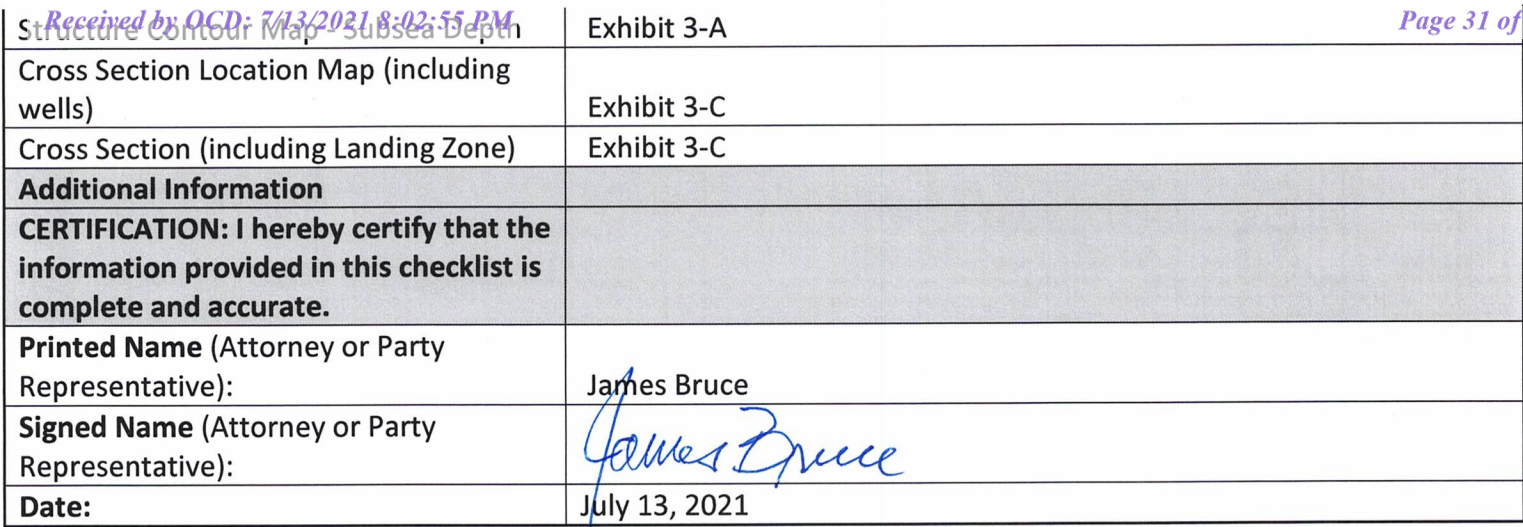 Received by OCD: 7/13/2021 8:02:55 PM
Page 31 of
Structure Contour Map - Subsea Depth
Exhibit 3-A
Cross Section Location Map (including
wells)
Exhibit 3-C
Cross Section (including Landing Zone)
Exhibit 3-C
Additional Information
CERTIFICATION: I hereby certify that the
information provided in this checklist is
complete and accurate.
Printed Name (Attorney or Party
Representative):
James Bruce
Signed Name (Attorney or Party
Representative):
James Bruce
Date:
July 13, 2021